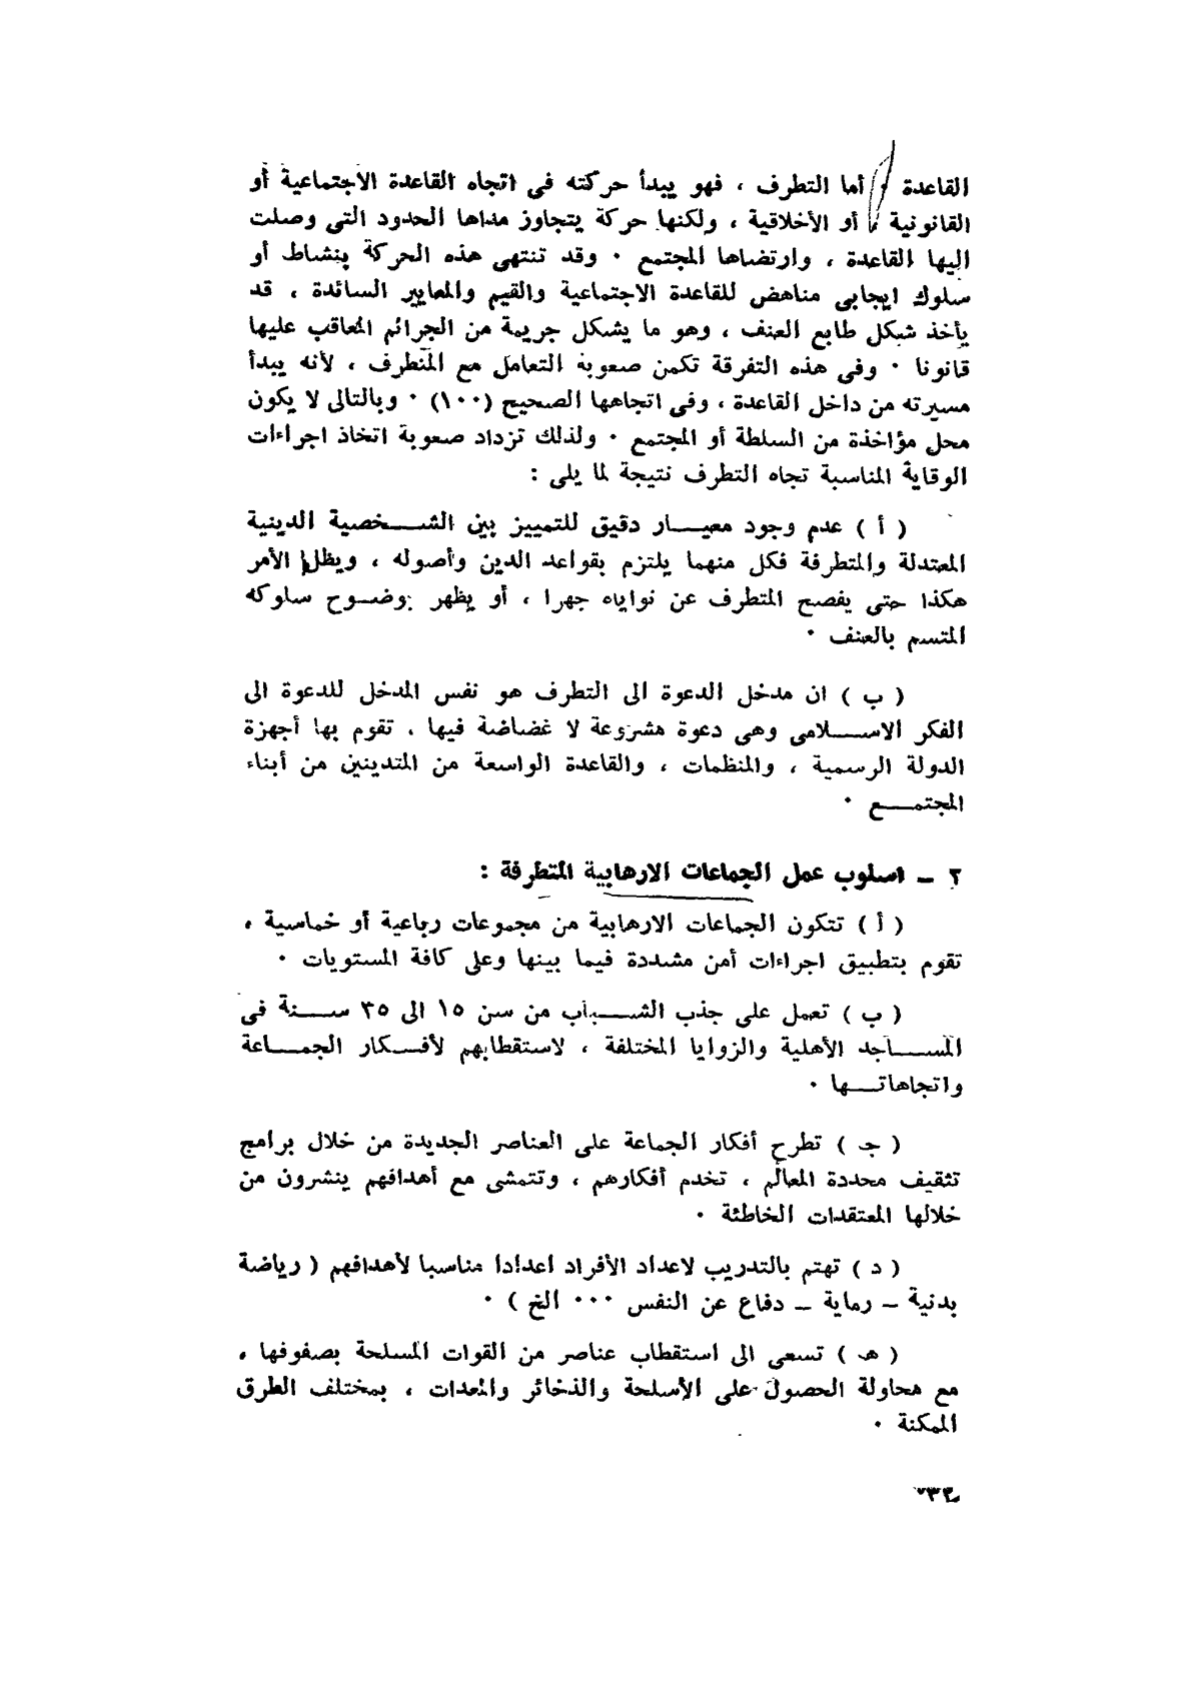 القاعدة . أما التطرف ، فهو يبدأ حركته فى اتجاه القاعدة الاجتماعية أو
القانونية ، أو الأخلاقية ، ولكنها حركة يتجاوز مداها الحدود التى وصلت
اليها القاعدة ، وارتضاها المجتمع . وقد تنتهى هذه الحركة بنشاط أو
سلوك ايجابى مناهض للقاعدة الاجتماعية والقيم والمعايير السائدة ، قد
يأخذ شكل طابع العنف ، وهو ما يشكل جريمة من الجرائم المعاقب عليها
قانونا . وفى هذه التفرقة تكمن صعوبة التعامل مع المتطرف ، لأنه يبدأ
مسيرته من داخل القاعدة ، وفى اتجاهها الصحيح (١٠٠) . وبالتالى لا يكون
محل مؤاخذة من السلطة أو المجتمع . ولذلك تزداد صعوبة اتخاذ اجراءات
الوقاية المناسبة تجاه التطرف نتيجة لما يلى :
( أ ) عدم وجود معيـــار دقيق للتمييز بين الشـــخصية الدينية
المعتدلة والمتطرفة فكل منهما يلتزم بقواعد الدين وأصوله ، ويظل الأمر
هكذا حتى يفصح المتطرف عن نواياه جهرا ، أو يظهر بوضـوح سلوكه
المتسم بالعنف .
( ب ) ان مدخل الدعوة الى التطرف هو نفس المدخل للدعوة الى
الفكر الاســـلامى وهى دعوة مشروعة لا غضاضة فيها ، تقوم بها أجهزة
الدولة الرسمية ، والمنظمات ، والقاعدة الواسعة من المتدينين من أبناء
المجتمـــع .
٢ – اسلوب عمل الجماعات الارهابية المتطرفة :
( أ ) تتكون الجماعات الارهابية من مجموعات رباعية أو خماسية ،
تقوم بتطبيق اجراءات أمن مشددة فيما بينها وعلى كافة المستويات .
( ب ) تعمل على جذب الشـــباب من سن ١٥ الى ٣٥ ســـنة فى
المســـاجد الأهلية والزوايا المختلفة ، لاستقطابهم لأفـكار الجمـــاعة
واتجاهاتـــها .
( جـ ) تطرح أفكار الجماعة على العناصر الجديدة من خلال برامج
تثقيف محددة المعالم ، تخدم أفكارهم ، وتتمشى مع أهدافهم ينشرون من
خلالها المعتقدات الخاطئة .
( د ) تهتم بالتدريب لاعداد الأفراد اعدادا مناسبا لأهدافهم ( رياضة
بدنية – رماية – دفاع عن النفس ... الخ ) .
( هـ ) تسعى الى استقطاب عناصر من القوات المسلحة بصفوفها ،
مع محاولة الحصول على الأسلحة والذخائر والمعدات ، بمختلف الطرق
الممكنة .